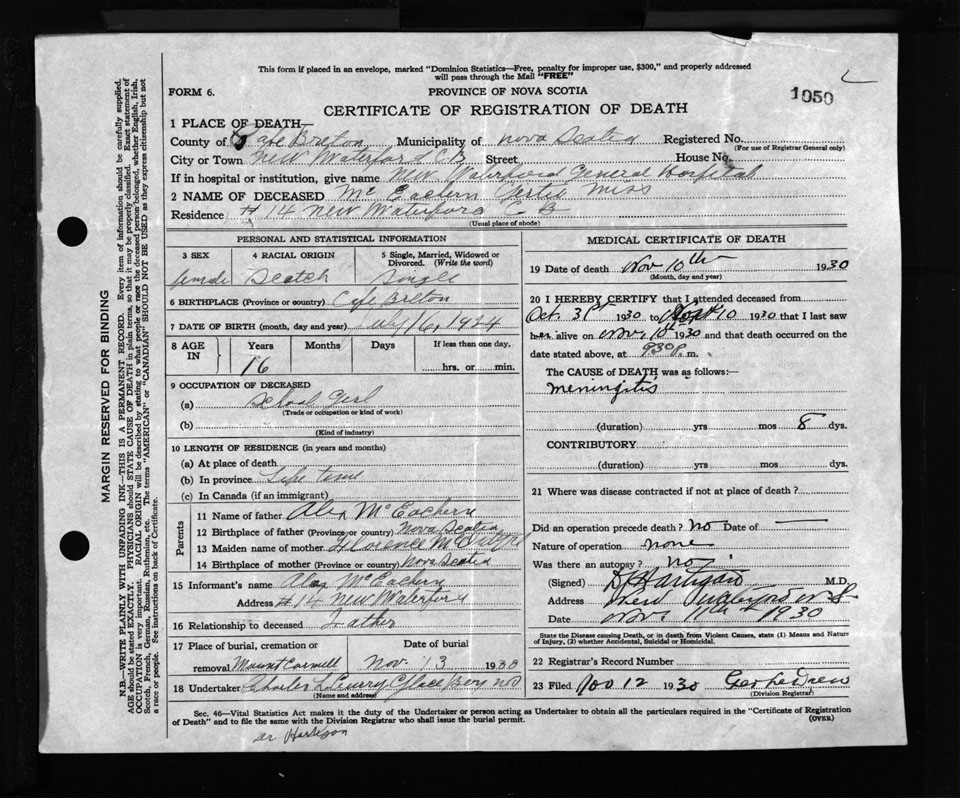 This form if placed in an envelope, marked "Dominion Statistics—Free, penalty for improper use, $300," and properly addressed
will pass through the Mail "FREE"
FORM 6.
PROVINCE OF NOVA SCOTIA
1050
CERTIFICATE OF REGISTRATION OF DEATH
1 PLACE OF DEATH—
County of Cape Breton Municipality of Nova Scotia Registered No.
(For use of Registrar General only)
City or Town New Waterford C.B. Street House No.
If in hospital or institution, give name New Waterford General Hospital
2 NAME OF DECEASED Mc Eachern Miss
Residence # 14 New Waterford C B
(Usual place of abode)
PERSONAL AND STATISTICAL INFORMATION
3 SEX 4 RACIAL ORIGIN 5 Single, Married, Widowed or
Divorced. (Write the word)
female Scotch Single
6 BIRTHPLACE (Province or country) Cape Breton
7 DATE OF BIRTH (month, day and year) July 16, 1924
8 AGE IN Years Months Days If less than one day,
16 hrs. or min.
9 OCCUPATION OF DECEASED
(a) School Girl
(Trade or occupation or kind of work)
(b)
(Kind of industry)
10 LENGTH OF RESIDENCE (in years and months)
(a) At place of death
(b) In province Life time
(c) In Canada (if an immigrant)
Parents
11 Name of father Alex McEachern
12 Birthplace of father (Province or country) Nova Scotia
13 Maiden name of mother Florence
14 Birthplace of mother (Province or country) Nova Scotia
15 Informant's name Alex McEachern
Address # 14 New Waterford
16 Relationship to deceased Father
17 Place of burial, cremation or Date of burial
removal Mount Carmell Nov. 13 1930
18 Undertaker Charles Curry Glace Bay NS
(Name and address)
MEDICAL CERTIFICATE OF DEATH
19 Date of death Nov 10th 1930
(Month, day and year)
20 I HEREBY CERTIFY that I attended deceased from
Oct. 31 1930 to 10 1930 that I last saw
her alive on Nov. 10th 1930 and that death occurred on the
date stated above, at m.
The CAUSE of DEATH was as follows:—
Meningitis
(duration) yrs mos 8 dys.
CONTRIBUTORY
(duration) yrs mos dys.
21 Where was disease contracted if not at place of death?
Did an operation precede death? No Date of —
Nature of operation none
Was there an autopsy? no
(Signed) Hartigan M.D.
Address New Waterford N.S.
Date Nov. 11th 1930
State the Disease causing Death, or in death from Violent Causes, state (1) Means and Nature
of Injury, (2) whether Accidental, Suicidal or Homicidal.
22 Registrar's Record Number
23 Filed Nov 12 1930
(Division Registrar)
Sec. 46—Vital Statistics Act makes it the duty of the Undertaker or person acting as Undertaker to obtain all the particulars required in the "Certificate of Registration
of Death" and to file the same with the Division Registrar who shall issue the burial permit.
(OVER)
Dr. Hartigan
MARGIN RESERVED FOR BINDING
N.B.—WRITE PLAINLY WITH UNFADING INK—THIS IS A PERMANENT RECORD. Every item of information should be carefully supplied.
AGE should be stated EXACTLY. PHYSICIANS should STATE CAUSE OF DEATH in plain terms, so that it may be properly classified. Exact statement of
OCCUPATION is very important. RACIAL ORIGIN will be described by stating to what people or race the deceased person belonged, whether English, Irish,
Scotch, French, German, Russian, Ruthenian, etc. The terms "AMERICAN" or "CANADIAN" SHOULD NOT BE USED as they express citizenship but not
a race or people. See instructions on back of Certificate.